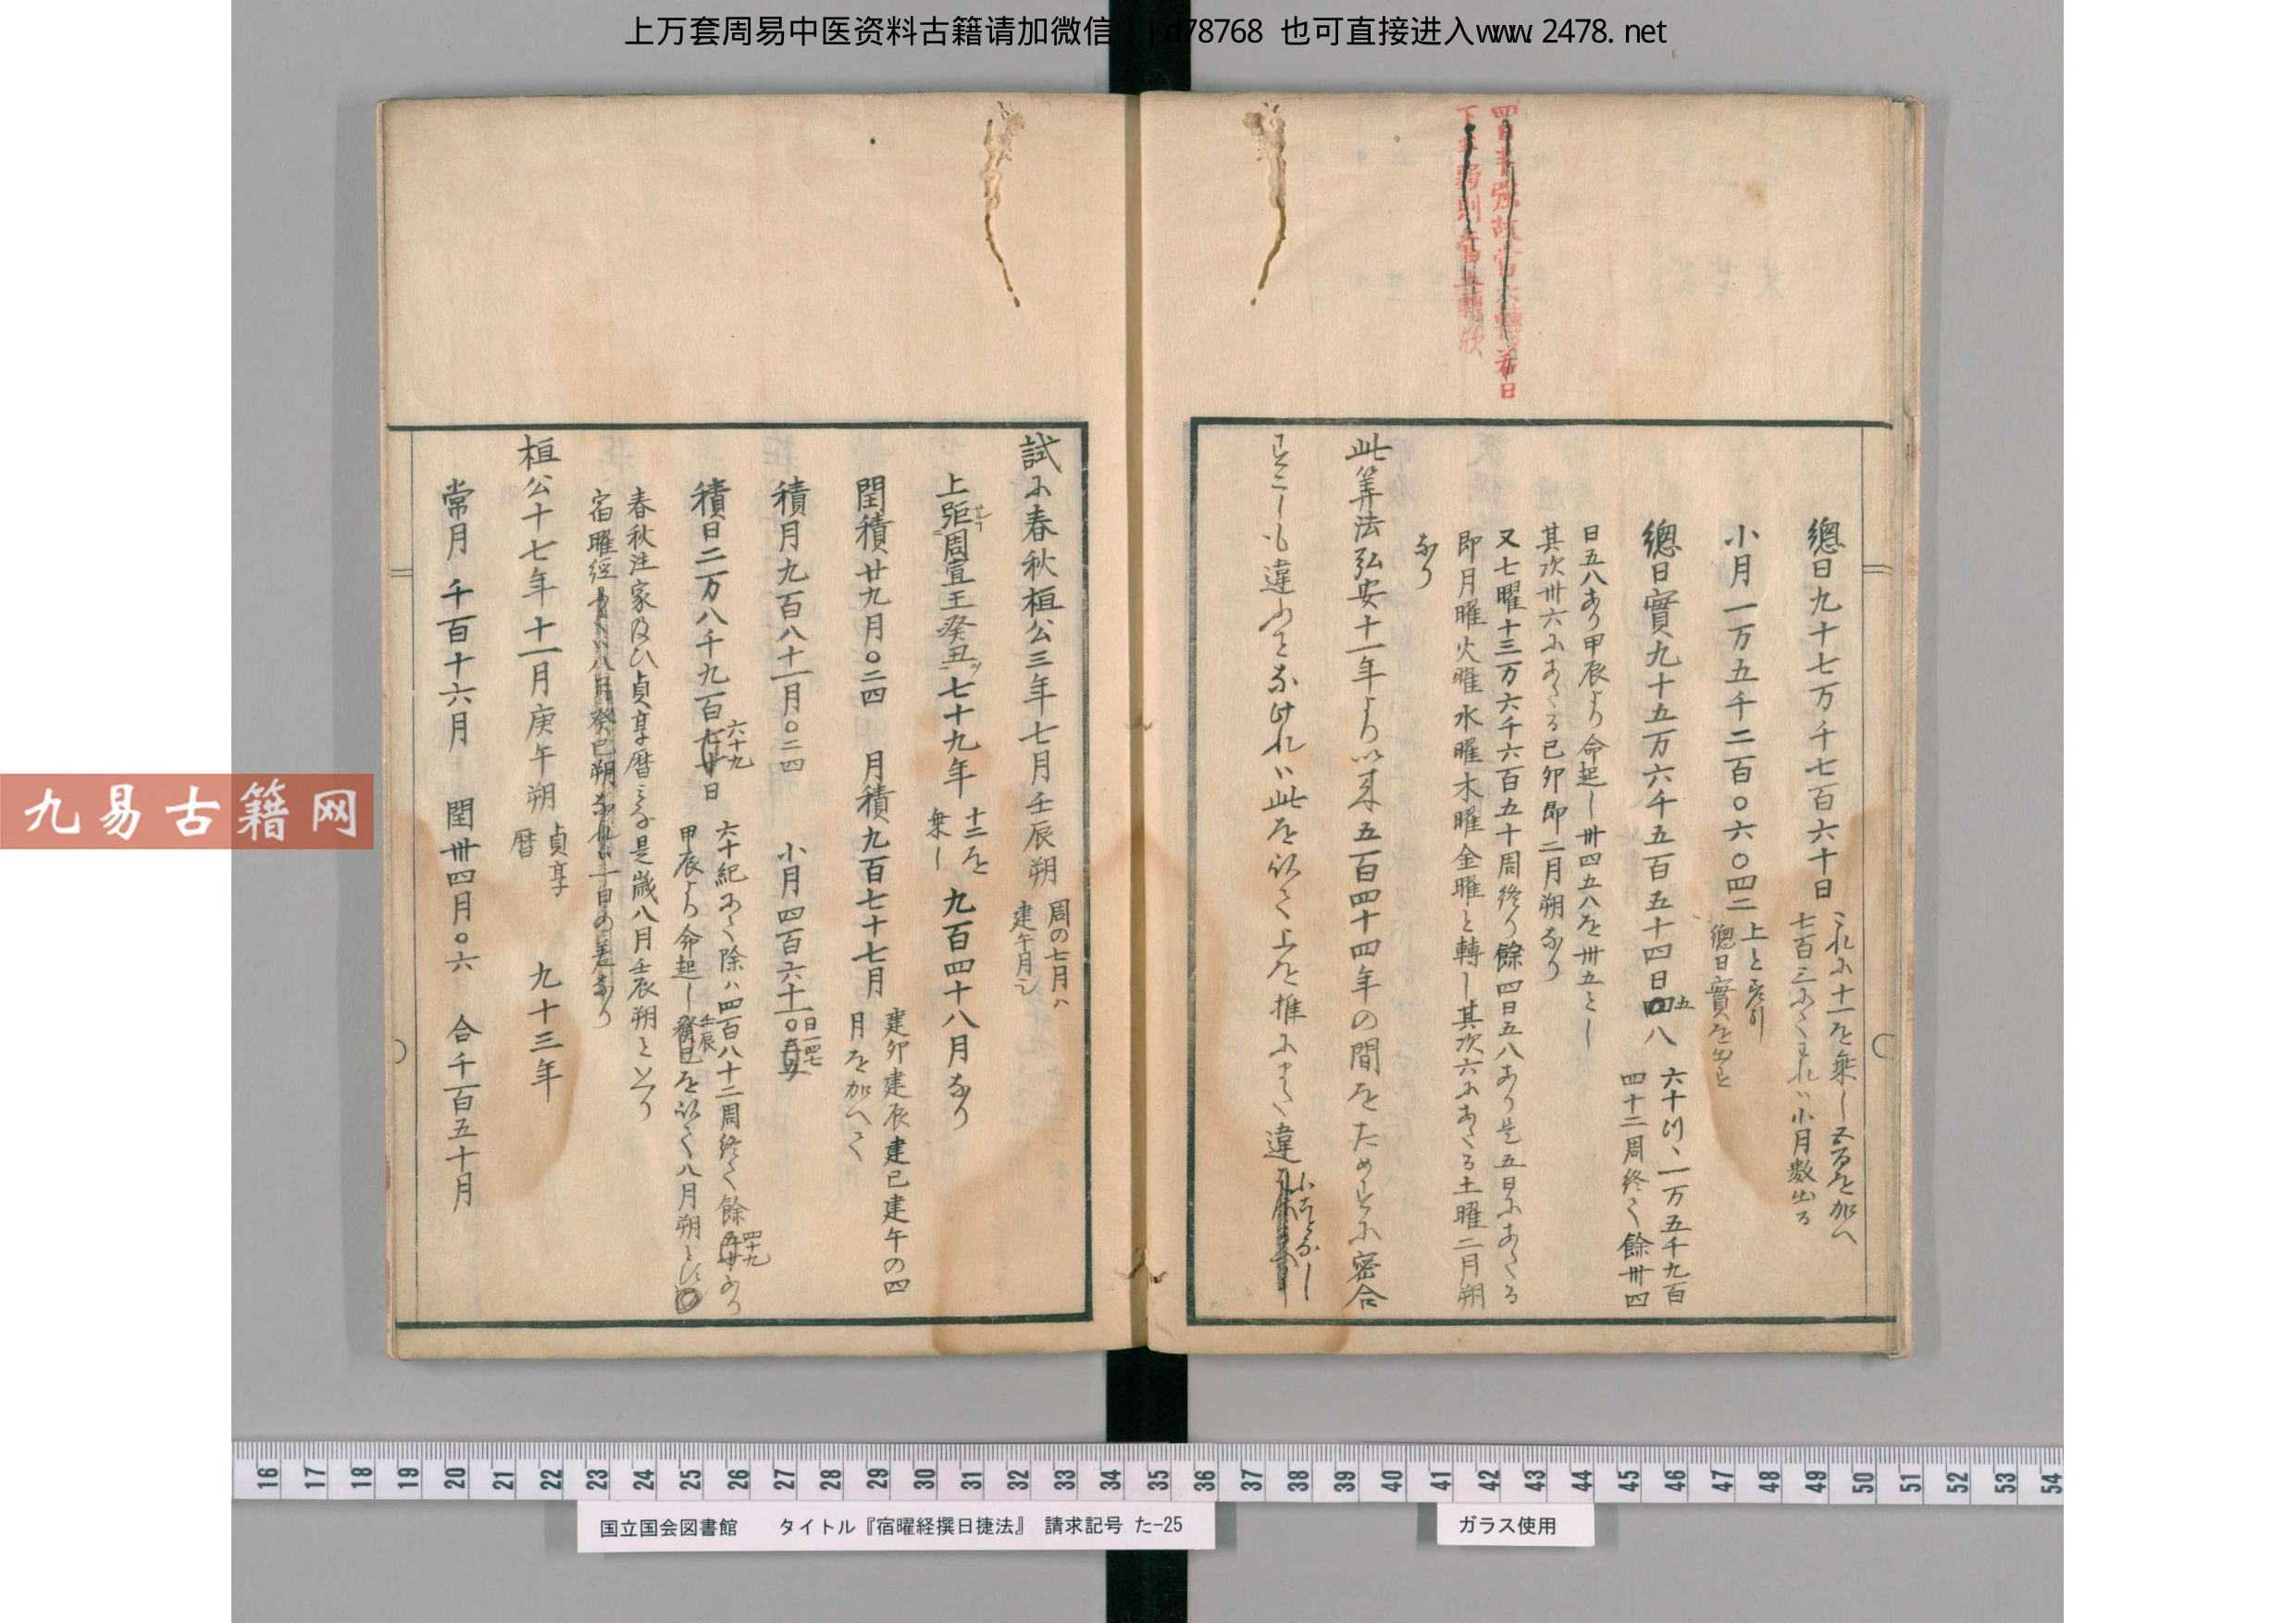 上万套周易中医资料古籍请加微信：jd78768 也可直接进入www.2478.net
四日半強故當六轉若日
下至弱則當五轉歟
總日九十七万千七百六十日
これに十一を乗し
七百三にてわれハ小月數出る
小月一万五千二百〇六〇四二
上と
總日實を出
總日實九十五万六千五百五十四日五八
六十 一万五千九百
四十二周終て餘卅四
日五八あり甲辰より命起し卅四五八を卅五とし
其次卅六にあたる己卯即二月朔なり
又七曜十三万六千六百五十周終り餘四日五八あり是五日にあたる
即月曜火曜水曜木曜金曜と轉し其次六にあたる土曜二月朔
なり
此筭法弘安十一年より以来五百四十四年の間をためすに密合
すこしも違ふことなけれハ此を以て上を推に
試に春秋桓公三年七月壬辰朔
周の七月ハ
建午月
上距周宣王癸丑七十九年
十二を
乗し
九百四十八月なり
閏積廿九月〇二四 月積九百七十七月
建卯建辰建巳建午の四
月を加へて
積月九百八十一月〇二四 小月四百六十一〇
積日二万八千九百六十九日
六十紀にて除ハ四百八十二周終て餘四十九あり
甲辰より命起し壬辰を以て八月朔とす
春秋注家及ひ貞享暦 是歳八月壬辰朔と
宿曜經 八月癸巳朔 一日の差なり
桓公十七年十一月庚午朔
貞享
暦
九十三年
常月千百十六月 閏卅四月〇六 合千百五十月
九易古籍网
16 17 18 19 20 21 22 23 24 25 26 27 28 29 30 31 32 33 34 35 36 37 38 39 40 41 42 43 44 45 46 47 48 49 50 51 52 53 54
国立国会図書館 タイトル『宿曜経撰日捷法』 請求記号 た-25
ガラス使用